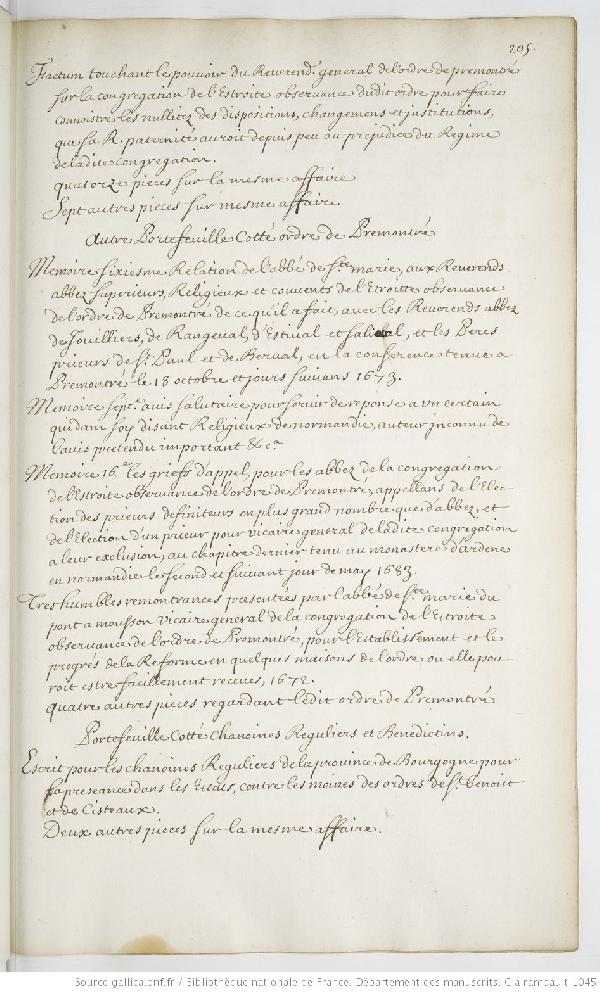 205.
Factum touchant le pouvoir du Reverend. general de l'ordre de premontré
sur la congregation de l'Estroite observance dudit ordre pour faire
connoistre les nullitez des dispositions, changemens et institutions,
que sa R. paternité auroit depuis peu au prejudice du Regime
de ladite congregation.
quatorze pieces sur la mesme affaire
Sept autres pieces sur mesme affaire
Autre Portefeuille Cotté ordre de Premontré
Memoire sixiesme Relation de l'abbé de Ste marie, aux Reverends
abbez superieurs, Religieux et couvents de l'Etroitte observance
de l'ordre de Premontré de ce qu'il a fait, avec les Reverends abbez
de Jouilliers, de Rangeval, d'Estival et Salival, et les Peres
prieurs de St. Paul et de Berval, en la conference tenue a
Premontré le 18 octobre et jours suivans 1673.
Memoire sept.e avis salutaire pour servir de reponse a un certain
quidam soy disant Religieux de normandie, auteur inconnu de
l'avis pretendu important &c.a
Memoire 16.e les griefs d'appel, pour les abbez de la congregation
de l'Estroite observance de l'ordre de Premontré, appellans de l'Elec-
tion des prieurs definiteurs en plus grand nombre que d'abbez, et
de l'Election d'un prieur pour vicaire general de ladite congregation
a leur exclusion, au chapitre dernier tenu au monastere d'ardene
en normandie le second et suivant jour de may 1683.
Tres humbles remontrances presentées par l'abbé de Ste marie du
pont a mousson vicaire general de la congregation de l'Etroite
observance de l'ordre de Premontré, pour l'etablissement et le
progrés de la Reforme en quelques maisons de l'ordre ou elle pou-
roit estre facillement receue, 1672.
quatre autres pieces regardant ledit ordre de Premontré
Portefeuille Cotté Chanoines Reguliers et Benedictins.
Escrit pour les chanoines Reguliers de la province de Bourgogne pour
la preseance dans les Etats, contre les moines des ordres de St. benoit
et de Cisteaux.
Deux autres pieces sur la mesme affaire.
Source gallica.bnf.fr / Bibliothèque nationale de France. Département des manuscrits. Clairambault 1045